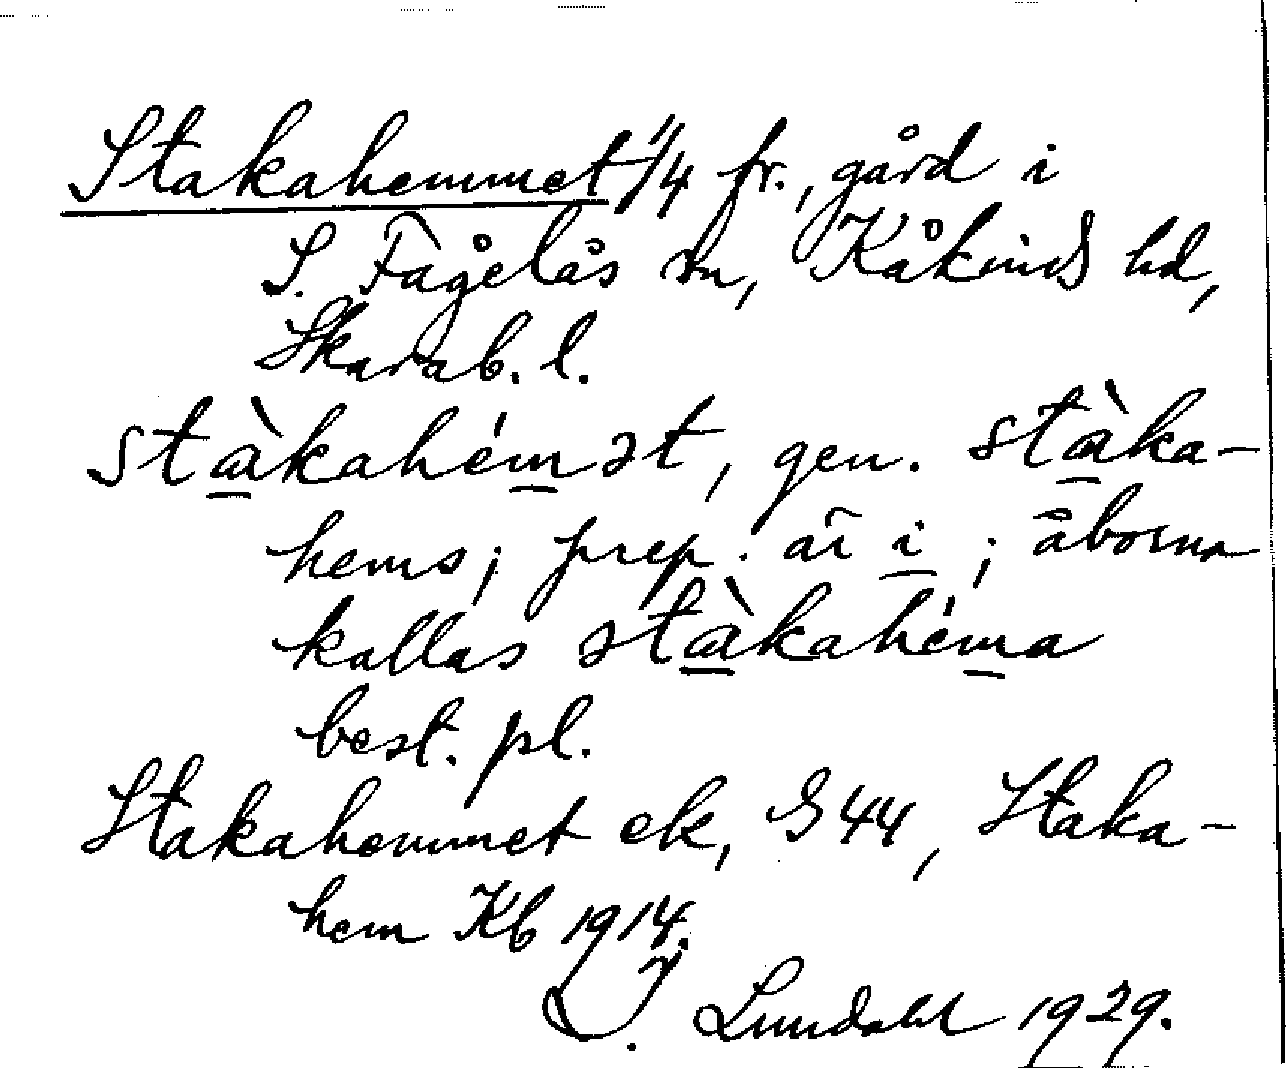 Stakahemmet 1/4 fr., gård i
S. Fågelås sn, Kåkinds hd,
Skarab. l.
stàkahémət, gen. stàka-
hems; prep. är i; åborna
kallas stàkahéma
best. pl.
Stakahemmet ek, G 44, Staka-
hem Kb 1914.
I. Lundahl 1929.